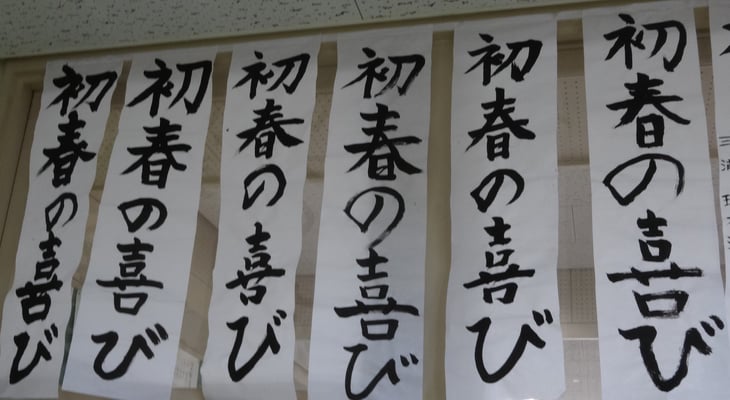 初春の喜び
初春の喜び
初春の喜び
初春の喜び
初春の喜び
初春の喜び